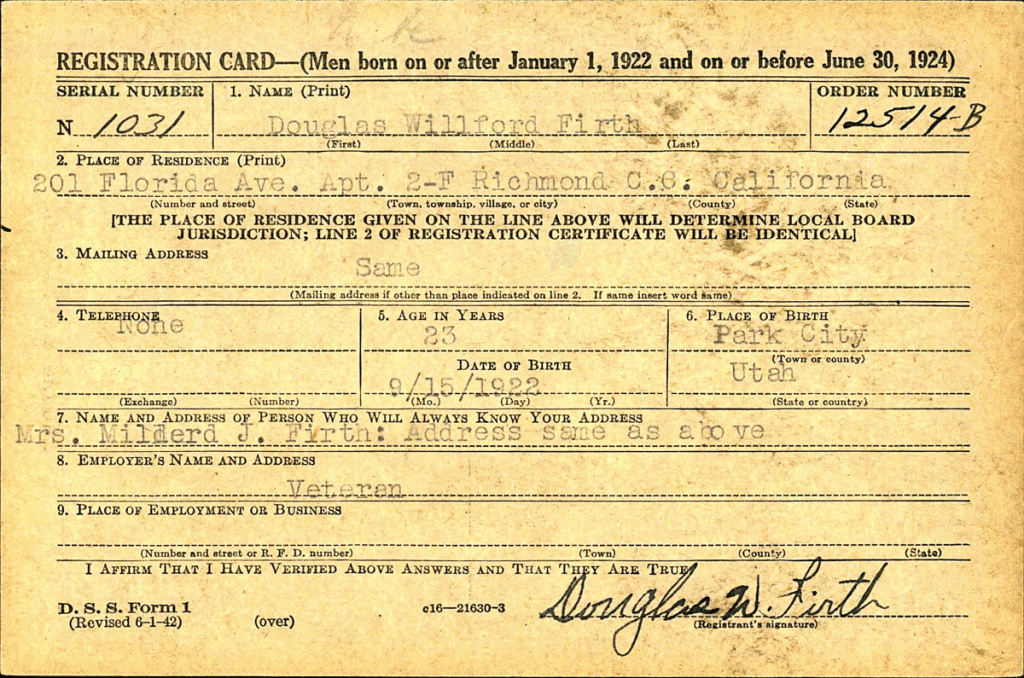 REGISTRATION CARD—(Men born on or after January 1, 1922 and on or before June 30, 1924)
SERIAL NUMBER 1. NAME (Print) ORDER NUMBER
N 1031 Douglas Willford Firth 12514-B
(First) (Middle) (Last)
2. PLACE OF RESIDENCE (Print)
201 Florida Ave. Apt. 2-F Richmond C.C. California
(Number and street) (Town, township, village, or city) (County) (State)
[THE PLACE OF RESIDENCE GIVEN ON THE LINE ABOVE WILL DETERMINE LOCAL BOARD
JURISDICTION; LINE 2 OF REGISTRATION CERTIFICATE WILL BE IDENTICAL]
3. MAILING ADDRESS
Same
(Mailing address if other than place indicated on line 2. If same insert word same)
4. TELEPHONE 5. AGE IN YEARS 6. PLACE OF BIRTH
None 23 Park City
(Town or county)
DATE OF BIRTH Utah
9/15/1922
(Exchange) (Number) (Mo.) (Day) (Yr.) (State or country)
7. NAME AND ADDRESS OF PERSON WHO WILL ALWAYS KNOW YOUR ADDRESS
Mrs. Milderd J. Firth: Address same as above
8. EMPLOYER'S NAME AND ADDRESS
Veteran
9. PLACE OF EMPLOYMENT OR BUSINESS
(Number and street or R. F. D. number) (Town) (County) (State)
I AFFIRM THAT I HAVE VERIFIED ABOVE ANSWERS AND THAT THEY ARE TRUE.
D. S. S. Form 1 c16—21630-3 Douglas W. Firth
(Revised 6-1-42) (over) (Registrant's signature)